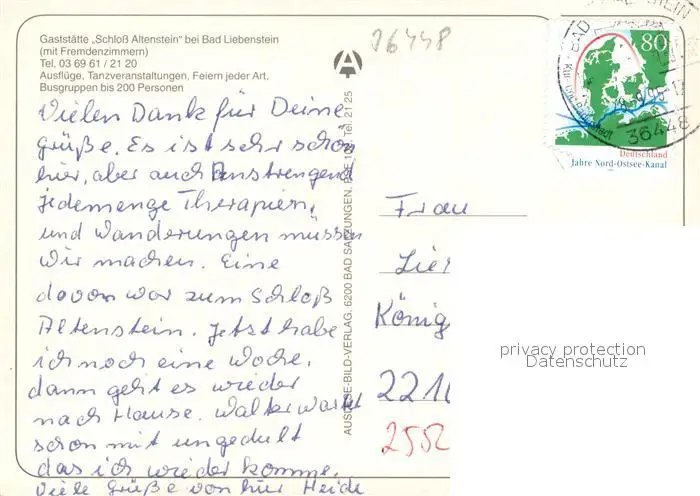 Gaststätte „Schloß Altenstein" bei Bad Liebenstein
(mit Fremdenzimmern)
Tel. 03 69 61 / 21 20
Ausflüge, Tanzveranstaltungen, Feiern jeder Art.
Busgruppen bis 200 Personen
36448
80
BAD
36448
Deutschland
Jahre Nord-Ostsee-Kanal
Vielen Dank für Deine
Grüße. Es ist sehr schön
hier, aber auch Anstrengend
jedemenge Therapien,
und Wanderungen müssen
wir machen. Eine
davon war zum Schloß
Altenstein. Jetzt habe
ich noch eine Woche,
dann geht es wieder
nach Hause. Walter wartet
schon mit ungedult
das ich wieder komme.
Viele Grüße von hier Heide
AUSLESE-BILD-VERLAG, 6200 BAD SALZUNGEN, Tel. 21 25
Frau
König
221
2552
privacy protection
Datenschutz